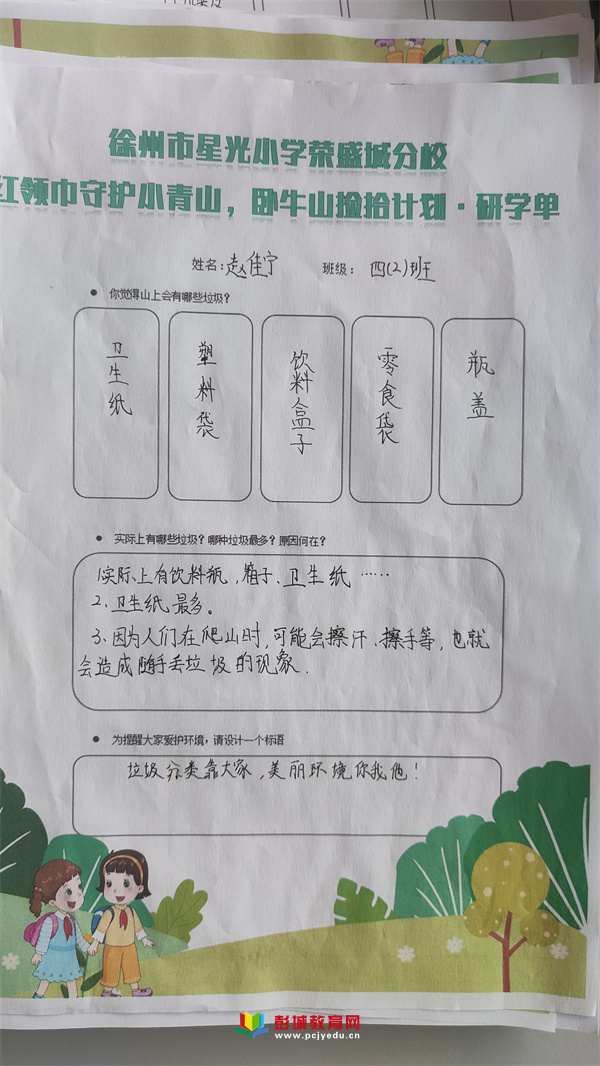 徐州市星光小学荣盛城分校
红领巾守护小青山，卧牛山捡拾计划·研学单
姓名：赵佳宁 班级：四(2)班
● 你觉得山上会有哪些垃圾？
卫生纸
塑料袋
饮料盒子
零食袋
瓶盖
● 实际上有哪些垃圾？哪种垃圾最多？原因何在？
1实际上有饮料瓶，箱子、卫生纸……
2、卫生纸最多。
3、因为人们在爬山时，可能会擦汗、擦手等，也就
会造成随手丢垃圾的现象.
● 为提醒大家爱护环境，请设计一个标语
垃圾分类靠大家，美丽环境你我他！
彭城教育网
www.pcjyedu.cn